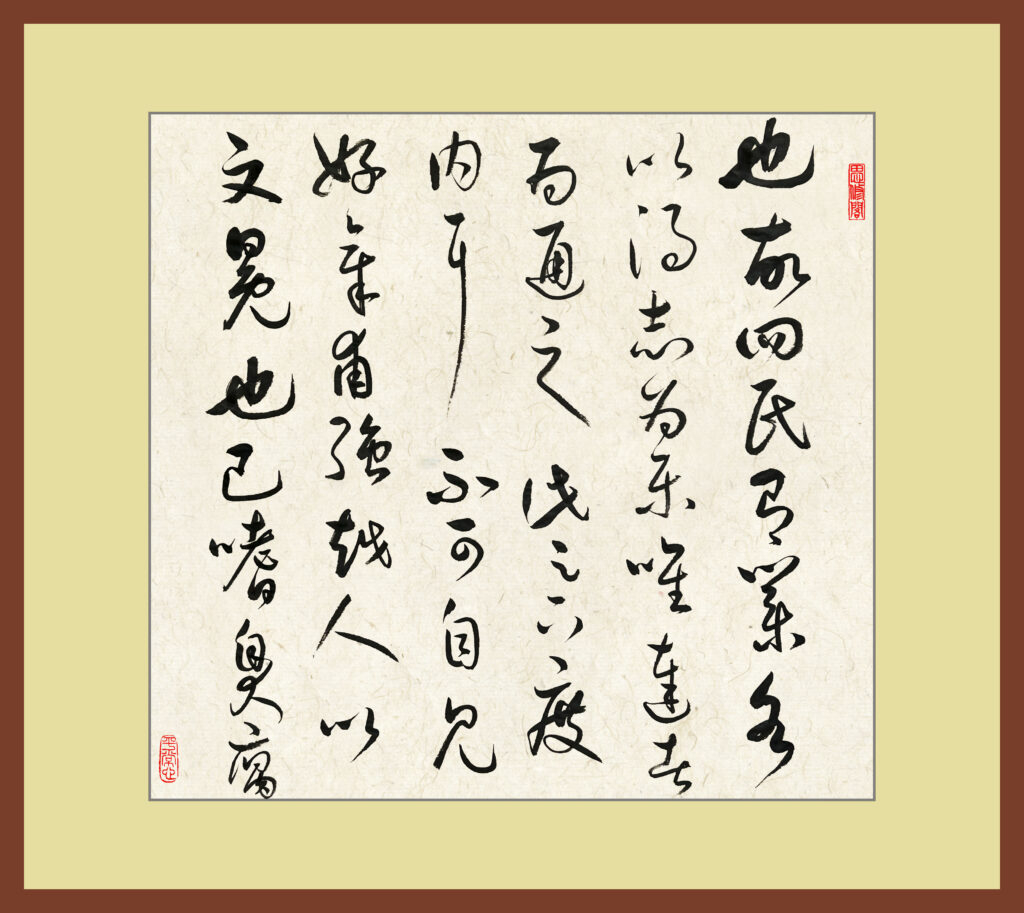 也故四民有業各
以得志為樂唯達者
為通之此足下度
内耳不可自見
好章甫強越人以
文冕也己嗜臭腐
平常心